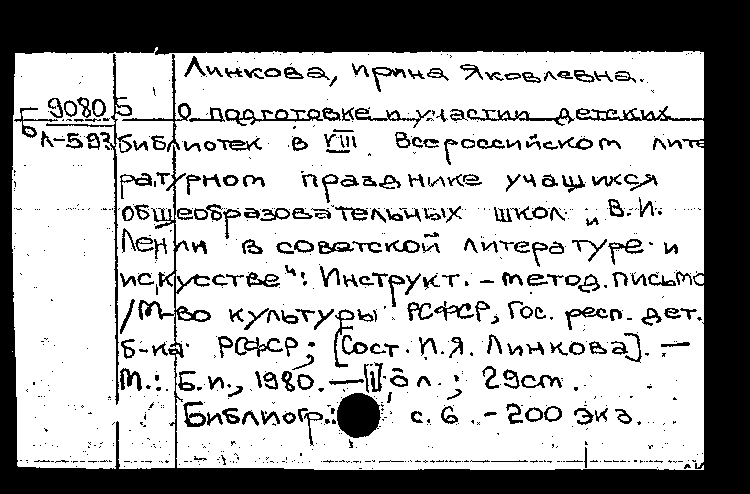 Линкова, Ирина Яковлевна.
Б 9080 5 О подготовке и участии детских
Л-593 библиотек в VIII Всероссийском лите
ратурном празднике учащихся
общеобразовательных школ „В.И.
Ленин в советской литературе и
искусстве“: Инструкт.-метод. письмо
/М-во культуры РСФСР, Гос. респ. дет.
б-ка РСФСР; [Сост. И.Я. Линкова]. —
М.: Б.и., 1980. — л.; 29см.
Библиогр.: с. 6. - 200 экз.